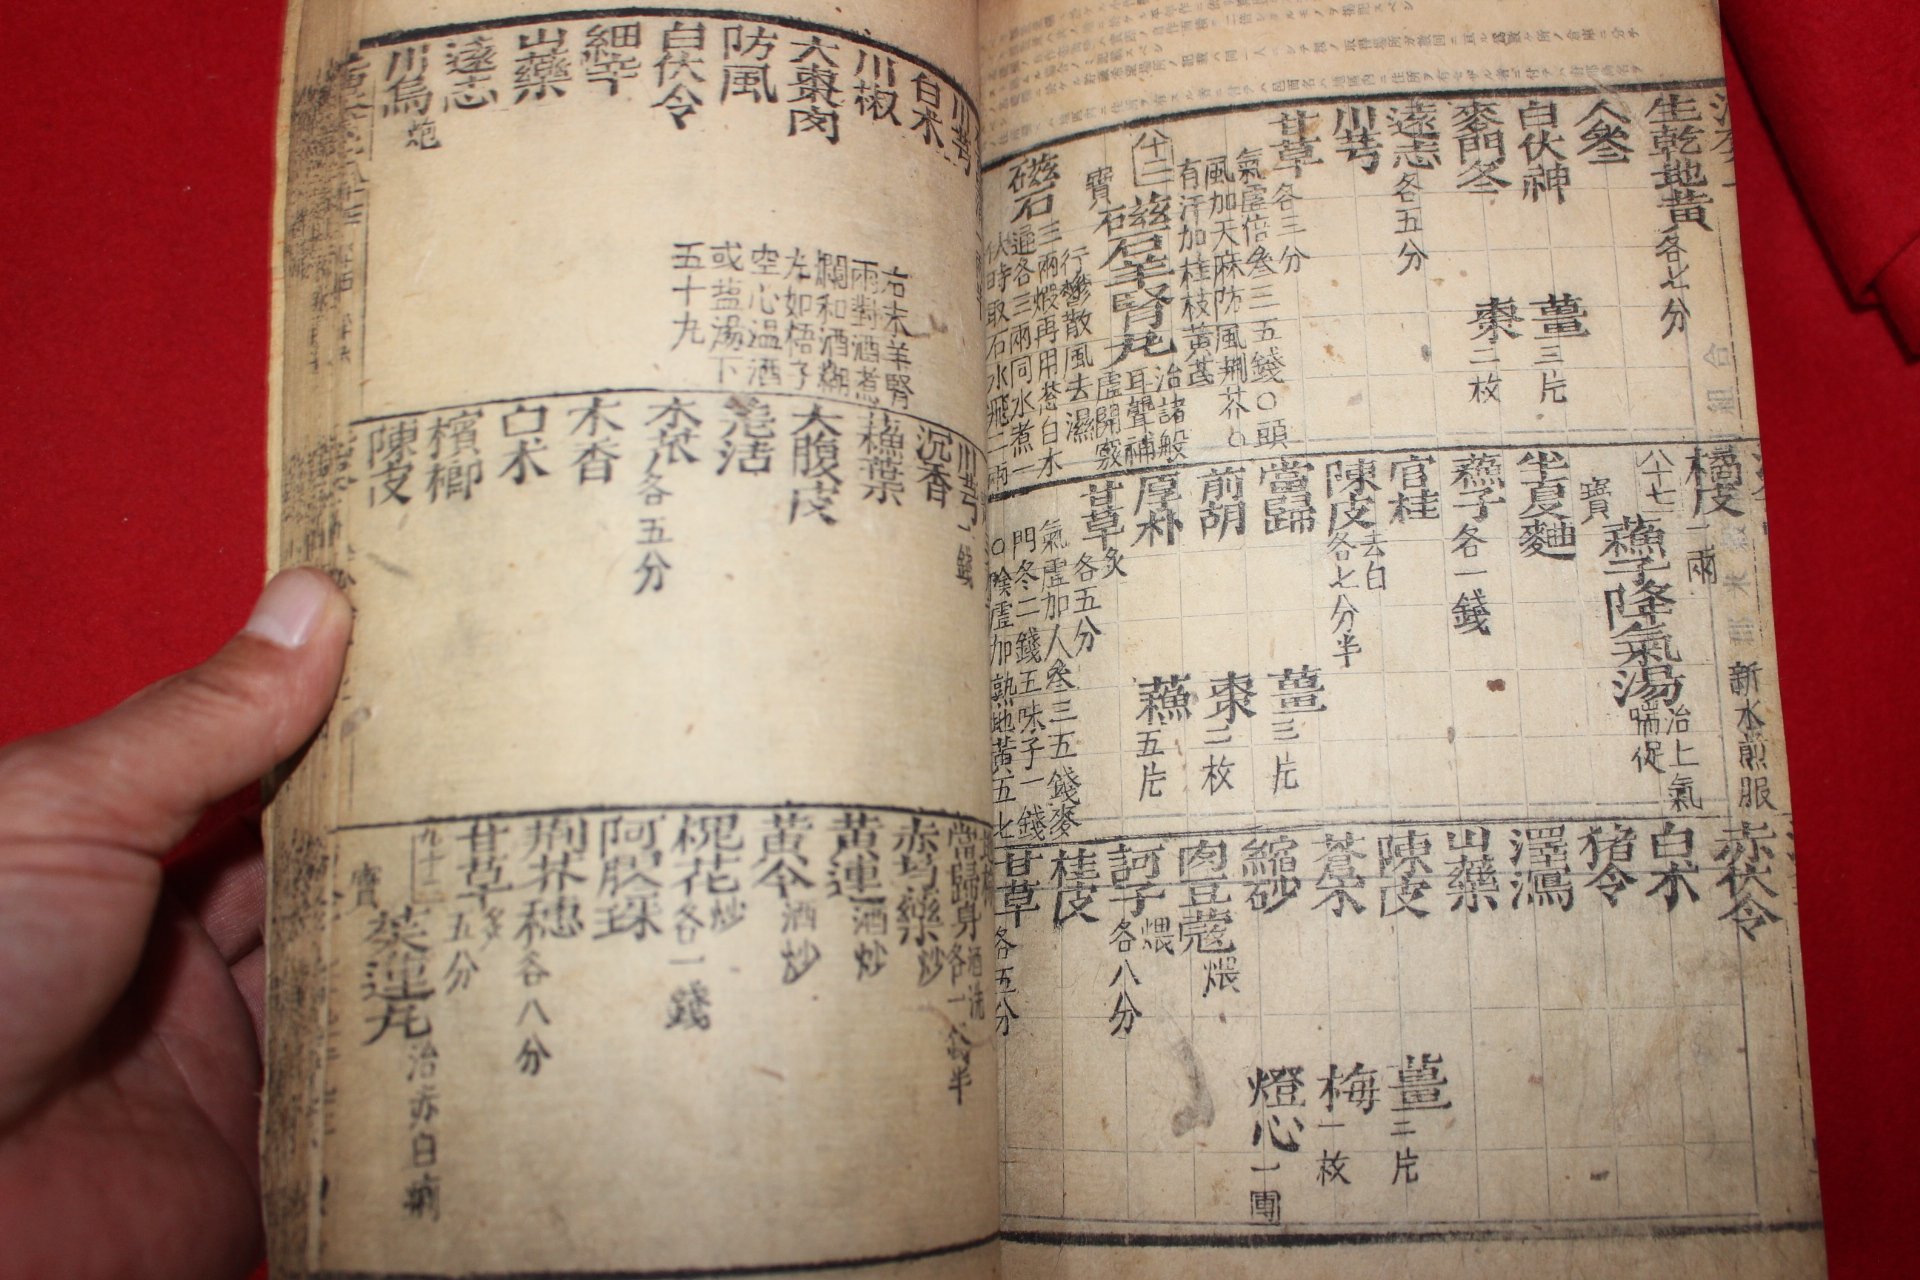 生乾地黃各七分
人參
白伏神
麥門冬
遠志各五分
川芎
甘草各三分
薑三片
棗二枚
氣虛倍參三五錢○頭
風加天麻防風荊芥○
有汗加桂枝黃芪
八十二
磁石羊腎丸治諸般
耳聾補
虛開竅
行鬱散風去濕
寶
磁石三兩煆再用葱白木
通各三兩同水煮一
伏時取石水飛二兩
川芎
白朮
川椒
大棗肉
防風
白伏令
細辛
山藥
遠志
川烏炮
右末羊腎
兩對酒煮
爛和酒糊
丸如梧子
空心溫酒
或盐湯下
五十丸
橘皮一兩
新水煎服
八十七
寶
蘓子降氣湯治上氣
喘促
半夏麯
蘓子各一錢
官桂
陳皮去白
各七分半
當歸
前胡
厚朴
甘草炙
各五分
薑三片
棗二枚
蘓五片
氣虛加人參三五錢麥
門冬二錢五味子一錢
○陰虛加熟地黃五七
川芎一錢
沉香
蘓葉
大腹皮
羌活
木瓜各五分
木香
白朮
檳榔
陳皮
赤伏令
白朮
猪令
澤瀉
山藥
陳皮
蒼朮
縮砂
肉豆蔲煨
訶子煨
各八分
桂皮
甘草各五分
薑二片
梅一枚
燈心一團
當歸身酒洗
各一錢半
赤芍藥炒
黃連酒炒
黃令酒炒
槐花炒
各一錢
阿膠珠
荊芥穗各八分
甘草炙
五分
九十二
寶
茱連丸治赤白痢